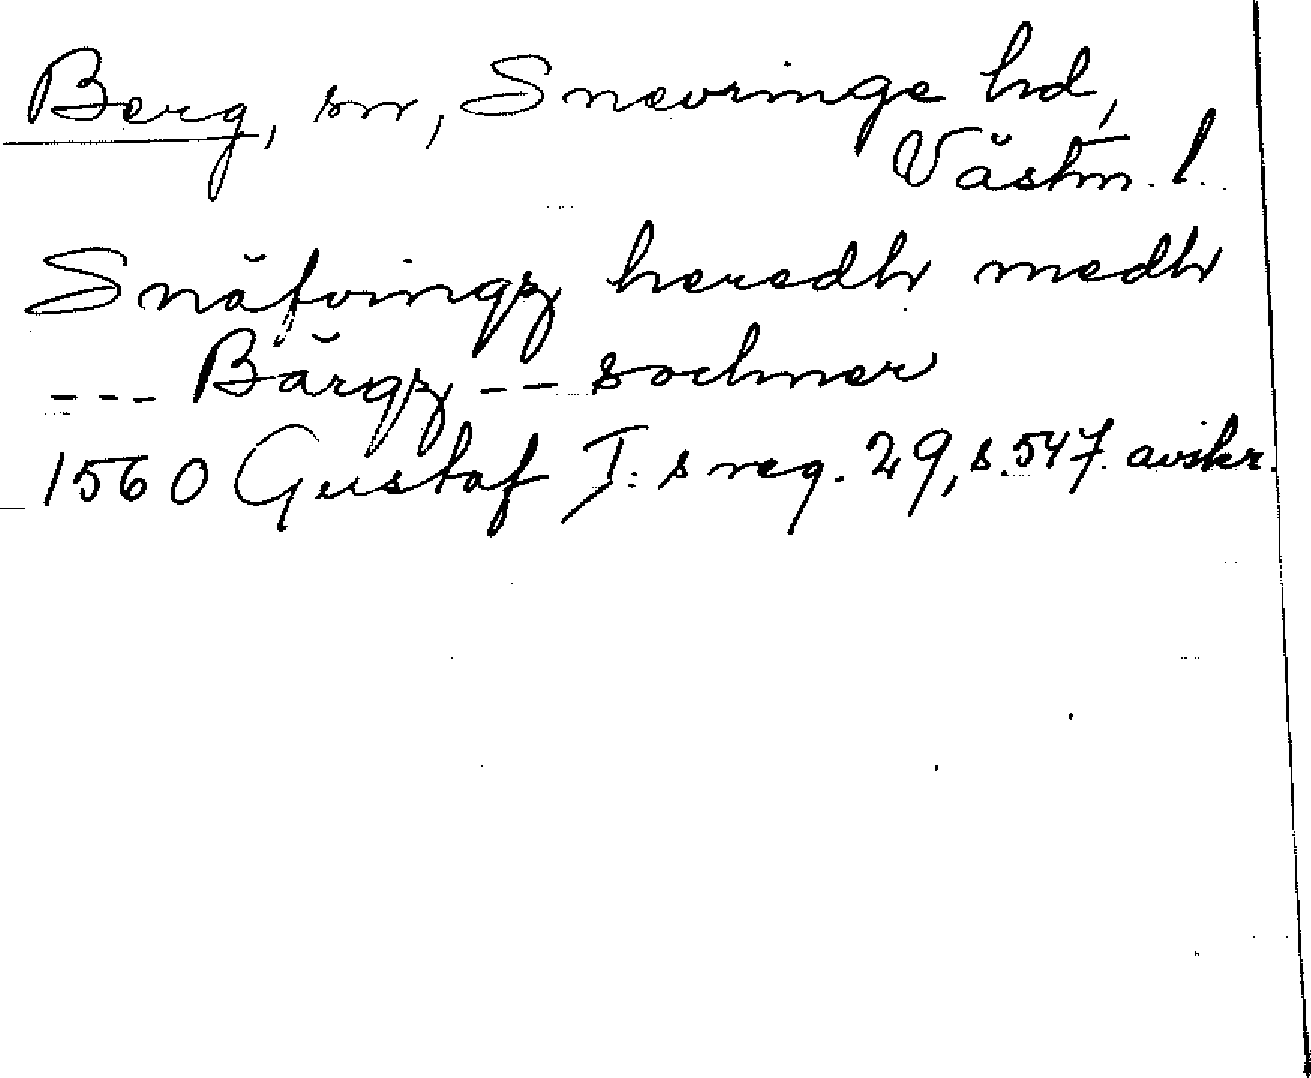 Berg, sn, Snevringe hd,
Västm. l.
Snäfvingz heredh medh
--- Bärgz -- sochner
1560 Gustaf I:s reg. 29, s. 547. avskr.